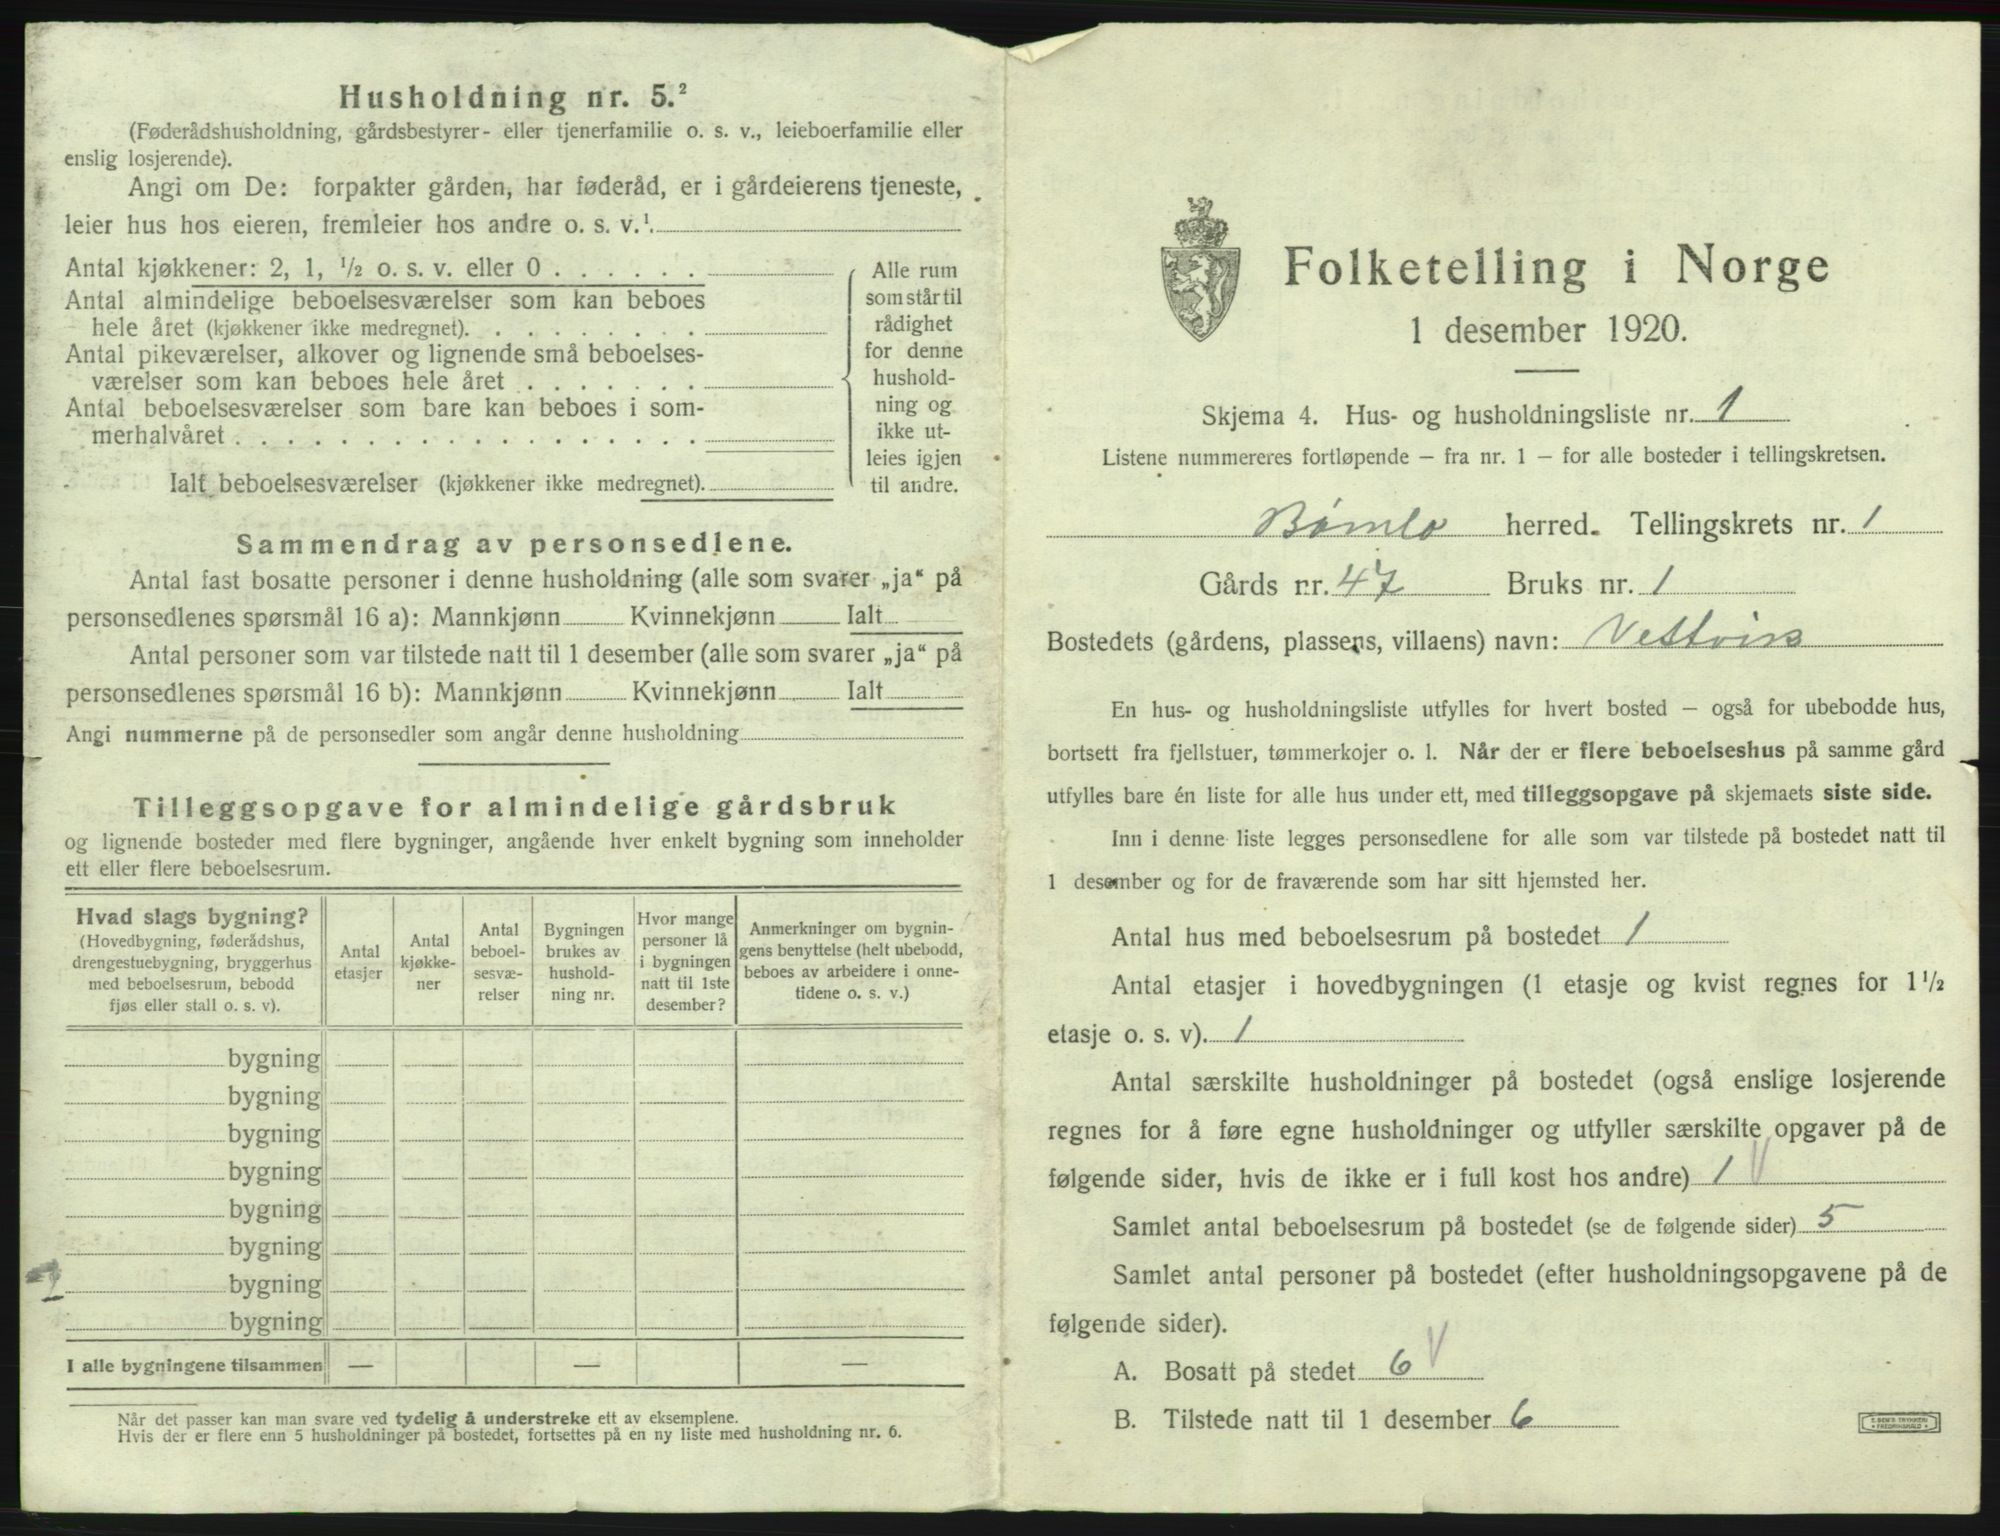 Husholdning nr. 5.²
(Føderådshusholdning, gårdsbestyrer- eller tjenerfamilie o. s. v., leieboerfamilie eller
enslig losjerende).
Angi om De: forpakter gården, har føderåd, er i gårdeierens tjeneste,
leier hus hos eieren, fremleier hos andre o. s. v.¹
Antal kjøkkener: 2, 1, ½ o. s. v. eller 0 . . . . . .
Antal almindelige beboelsesværelser som kan beboes
hele året (kjøkkener ikke medregnet). . . . . . . . .
Antal pikeværelser, alkover og lignende små beboelses-
værelser som kan beboes hele året . . . . . . .
Antal beboelsesværelser som bare kan beboes i som-
merhalvåret . . . . . . . . . . . . . . . . . .
Ialt beboelsesværelser (kjøkkener ikke medregnet).
Alle rum
som står til
rådighet
for denne
hushold-
ning og
ikke ut-
leies igjen
til andre.
Sammendrag av personsedlene.
Antal fast bosatte personer i denne husholdning (alle som svarer „ja“ på
personsedlenes spørsmål 16 a): Mannkjønn Kvinnekjønn Ialt
Antal personer som var tilstede natt til 1 desember (alle som svarer „ja“ på
personsedlenes spørsmål 16 b): Mannkjønn Kvinnekjønn Ialt
Angi nummerne på de personsedler som angår denne husholdning
Tilleggsopgave for almindelige gårdsbruk
og lignende bosteder med flere bygninger, angående hver enkelt bygning som inneholder
ett eller flere beboelsesrum.
Hvad slags bygning?
(Hovedbygning, føderådshus,
drengestuebygning, bryggerhus
med beboelsesrum, bebodd
fjøs eller stall o. s. v).
Antal
etasjer
Antal
kjøkke-
ner
Antal
beboel-
sesvæ-
relser
Bygningen
brukes av
hushold-
ning nr.
Hvor mange
personer lå
i bygningen
natt til 1ste
desember?
Anmerkninger om bygnin-
gens benyttelse (helt ubebodd,
beboes av arbeidere i onne-
tidene o. s. v.)
bygning
bygning
bygning
bygning
bygning
bygning
bygning
bygning
I alle bygningene tilsammen — — —
Når det passer kan man svare ved tydelig å understreke ett av eksemplene.
Hvis der er flere enn 5 husholdninger på bostedet, fortsettes på en ny liste med husholdning nr. 6.
Folketelling i Norge
1 desember 1920.
Skjema 4. Hus- og husholdningsliste nr. 1
Listene nummereres fortløpende — fra nr. 1 — for alle bosteder i tellingskretsen.
Bømlo herred. Tellingskrets nr. 1
Gårds nr. 47 Bruks nr. 1
Bostedets (gårdens, plassens, villaens) navn: Vestvik
En hus- og husholdningsliste utfylles for hvert bosted — også for ubebodde hus,
bortsett fra fjellstuer, tømmerkojer o. l. Når der er flere beboelseshus på samme gård
utfylles bare én liste for alle hus under ett, med tilleggsopgave på skjemaets siste side.
Inn i denne liste legges personsedlene for alle som var tilstede på bostedet natt til
1 desember og for de fraværende som har sitt hjemsted her.
Antal hus med beboelsesrum på bostedet 1
Antal etasjer i hovedbygningen (1 etasje og kvist regnes for 1½
etasje o. s. v). 1
Antal særskilte husholdninger på bostedet (også enslige losjerende
regnes for å føre egne husholdninger og utfyller særskilte opgaver på de
følgende sider, hvis de ikke er i full kost hos andre) 1
Samlet antal beboelsesrum på bostedet (se de følgende sider) 5
Samlet antal personer på bostedet (efter husholdningsopgavene på de
følgende sider).
A. Bosatt på stedet 6
B. Tilstede natt til 1 desember 6